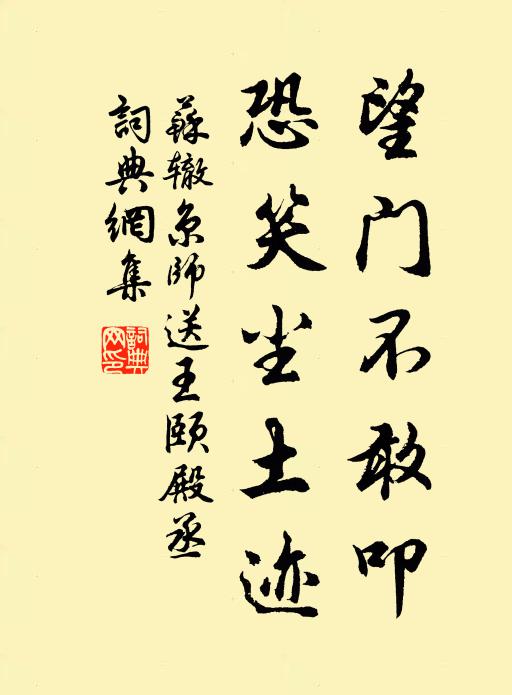 望门不敢叩
恐笑尘土迹
蘇辙京师送王颐殿丞
詞典網集
詞典网印